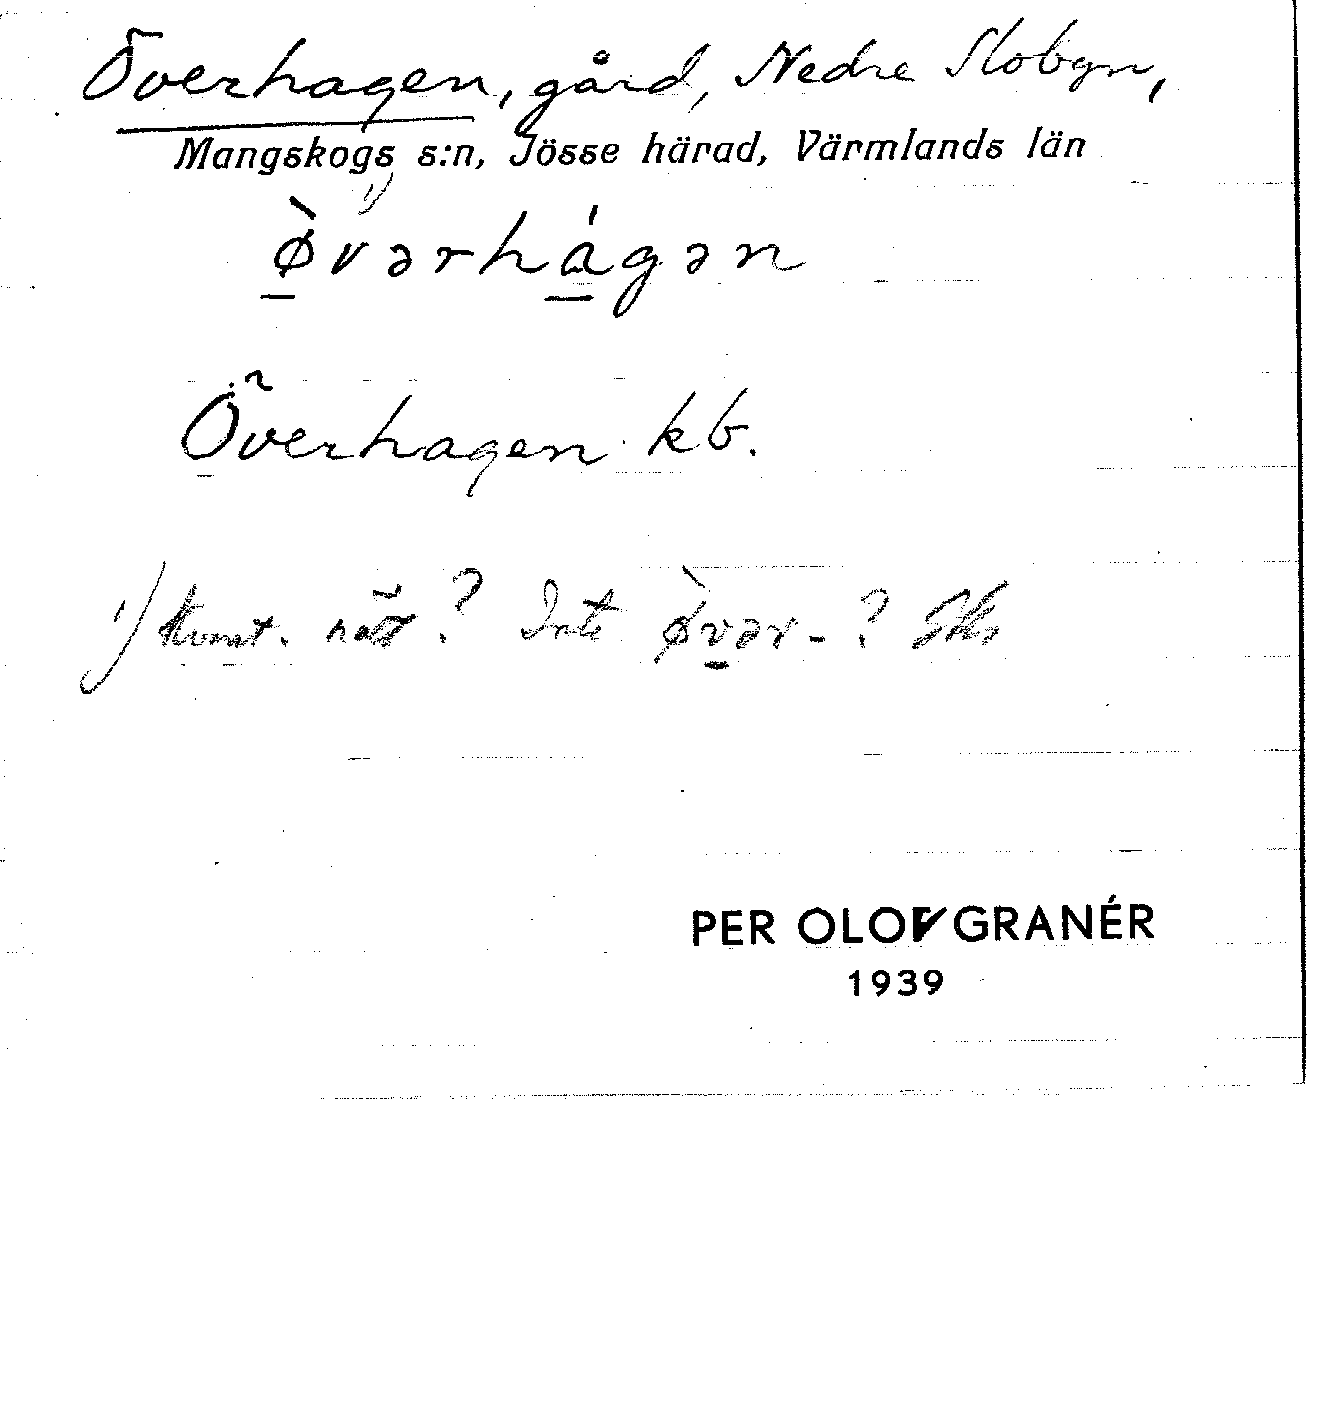 Överhagen, gård, Nedre Slobyn,
Mangskogs s:n, Jösse härad, Värmlands län
1)
ø̱̀vərhá̱gən
Överhagen kb.
1) Kvant. rätt? Inte ø̀v̱ər-?
PER OLOF GRANÉR
1939